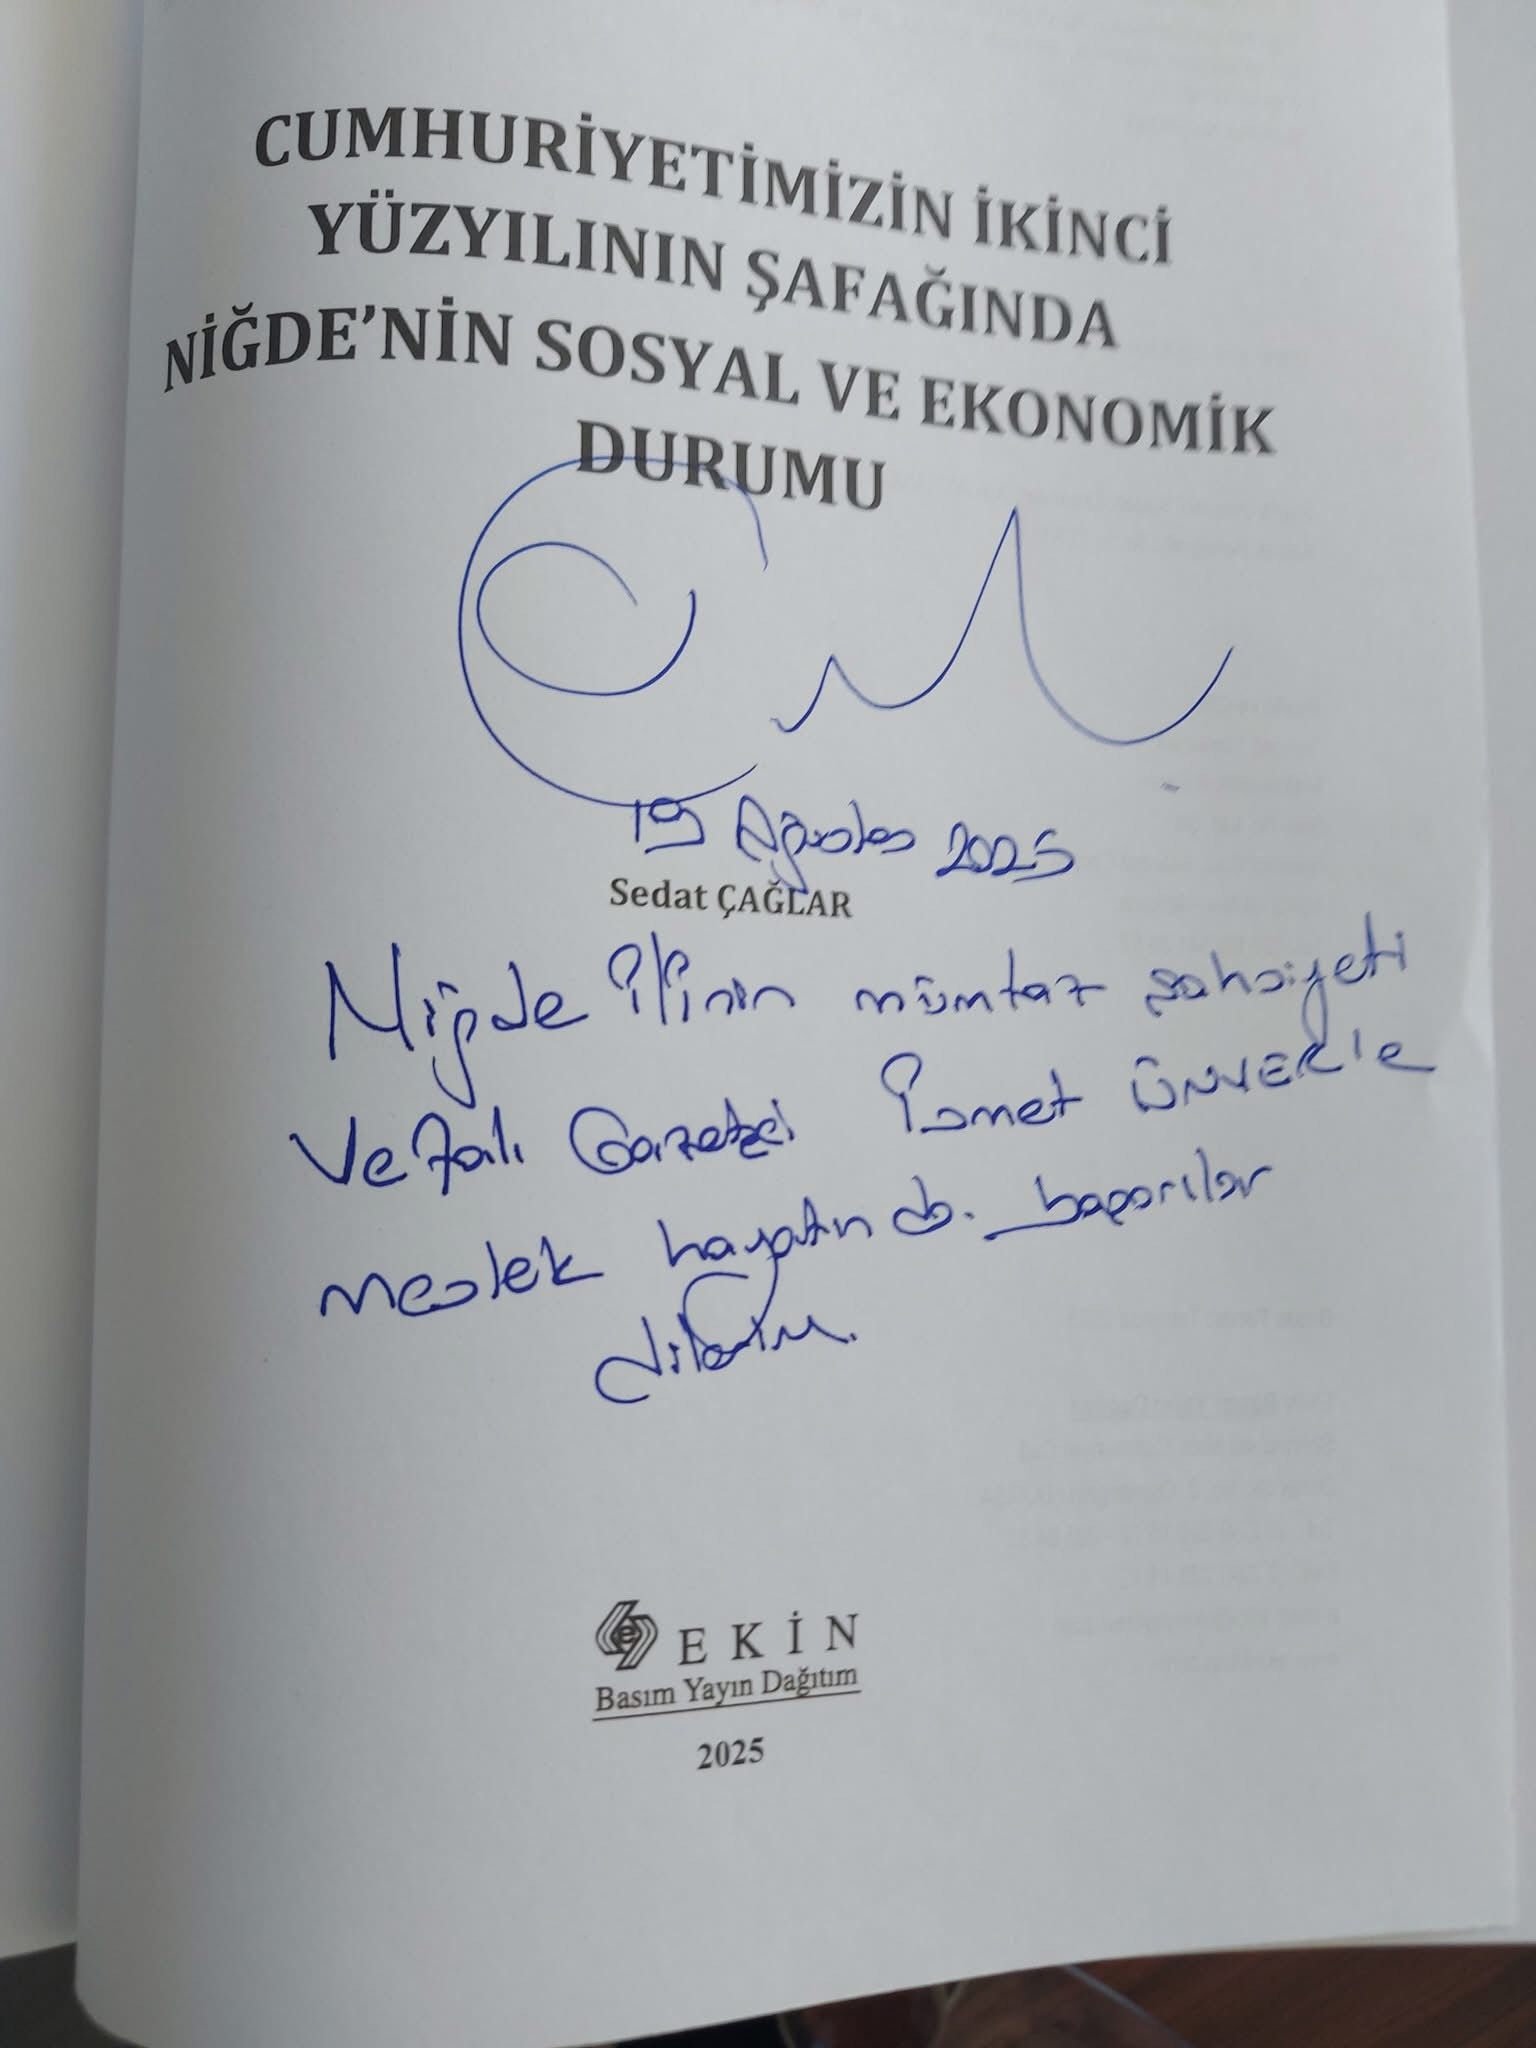 CUMHURİYETİMİZİN İKİNCİ
YÜZYILININ ŞAFAĞINDA
NİĞDE'NİN SOSYAL VE EKONOMİK
DURUMU
19 Ağustos 2025
Sedat ÇAĞLAR
Niğde ilinin mümtaz şahsiyeti
Vefalı Gazeteci İsmet ÜNVER'e
meslek hayatında başarılar
dilerim.
EKİN
Basım Yayın Dağıtım
2025